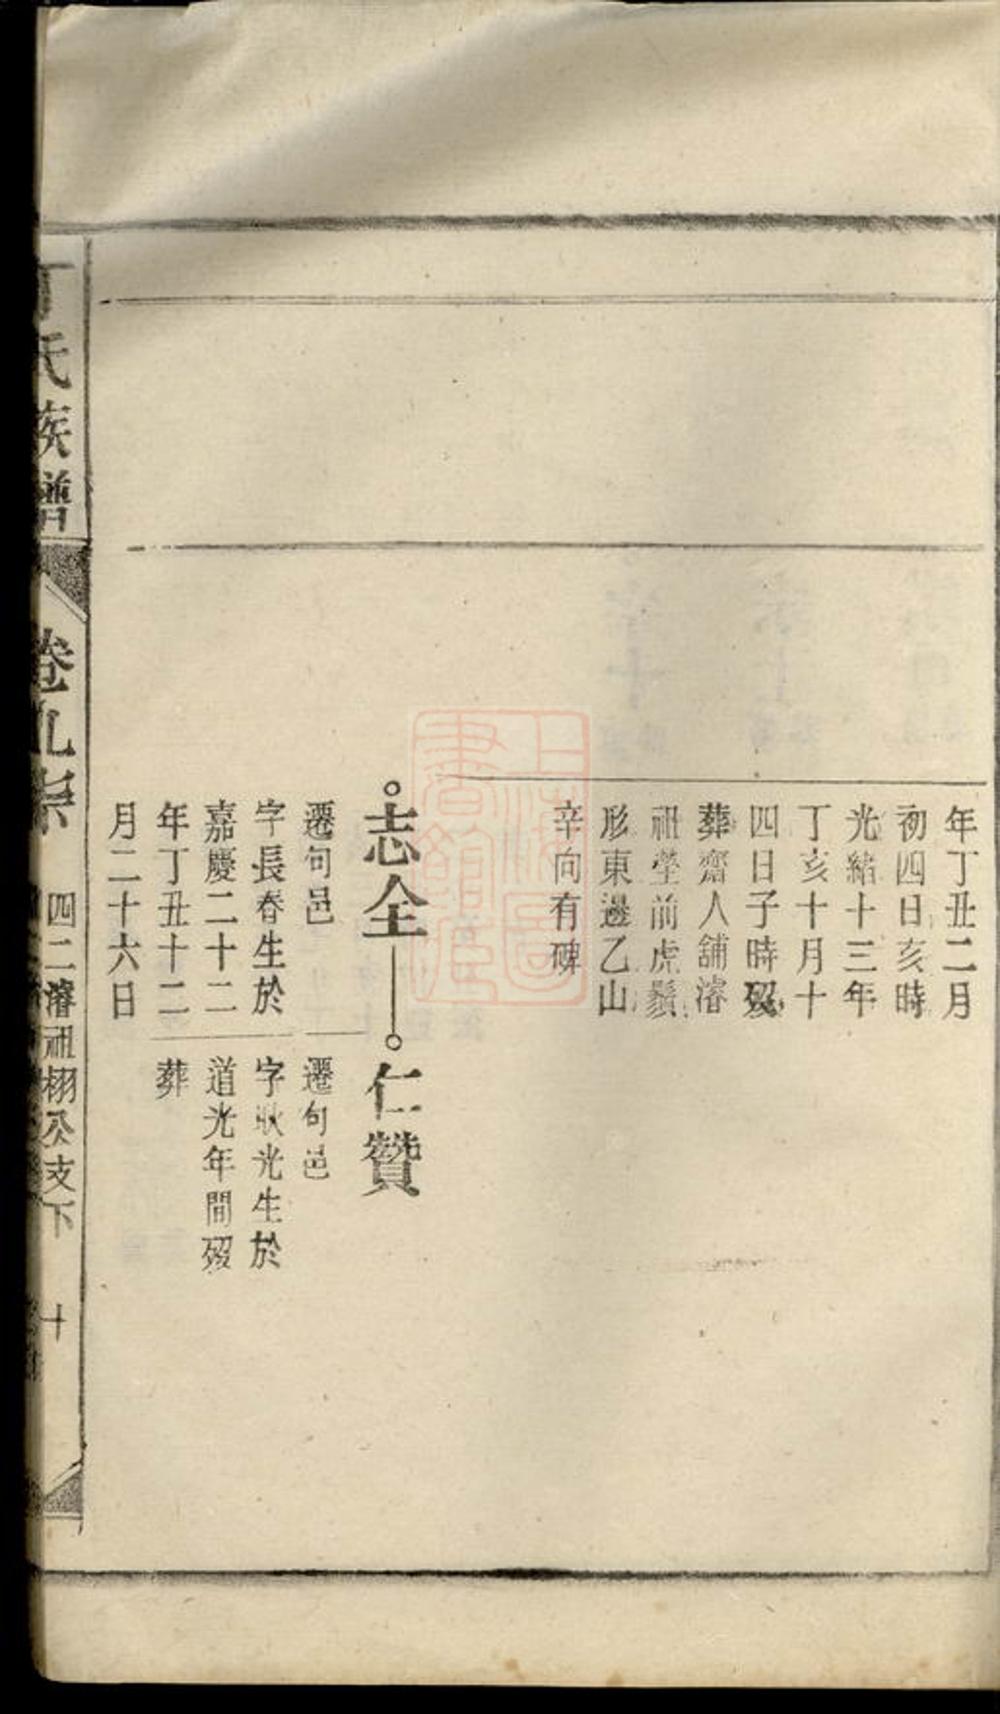 年丁丑二月
初四日亥時
光緒十三年
丁亥十月十
四日子時歿
葬齋人舖濬
祖塋前虎鬚
形東邊乙山
辛向有碑
志全
仁贊
遷句邑
字長春生於
嘉慶二十二
年丁丑十二
月二十六日
遷句邑
字耿光生於
道光年間歿
葬
丁氏族譜
卷九
四二濬祖栩公支下
十
上海圖書館藏